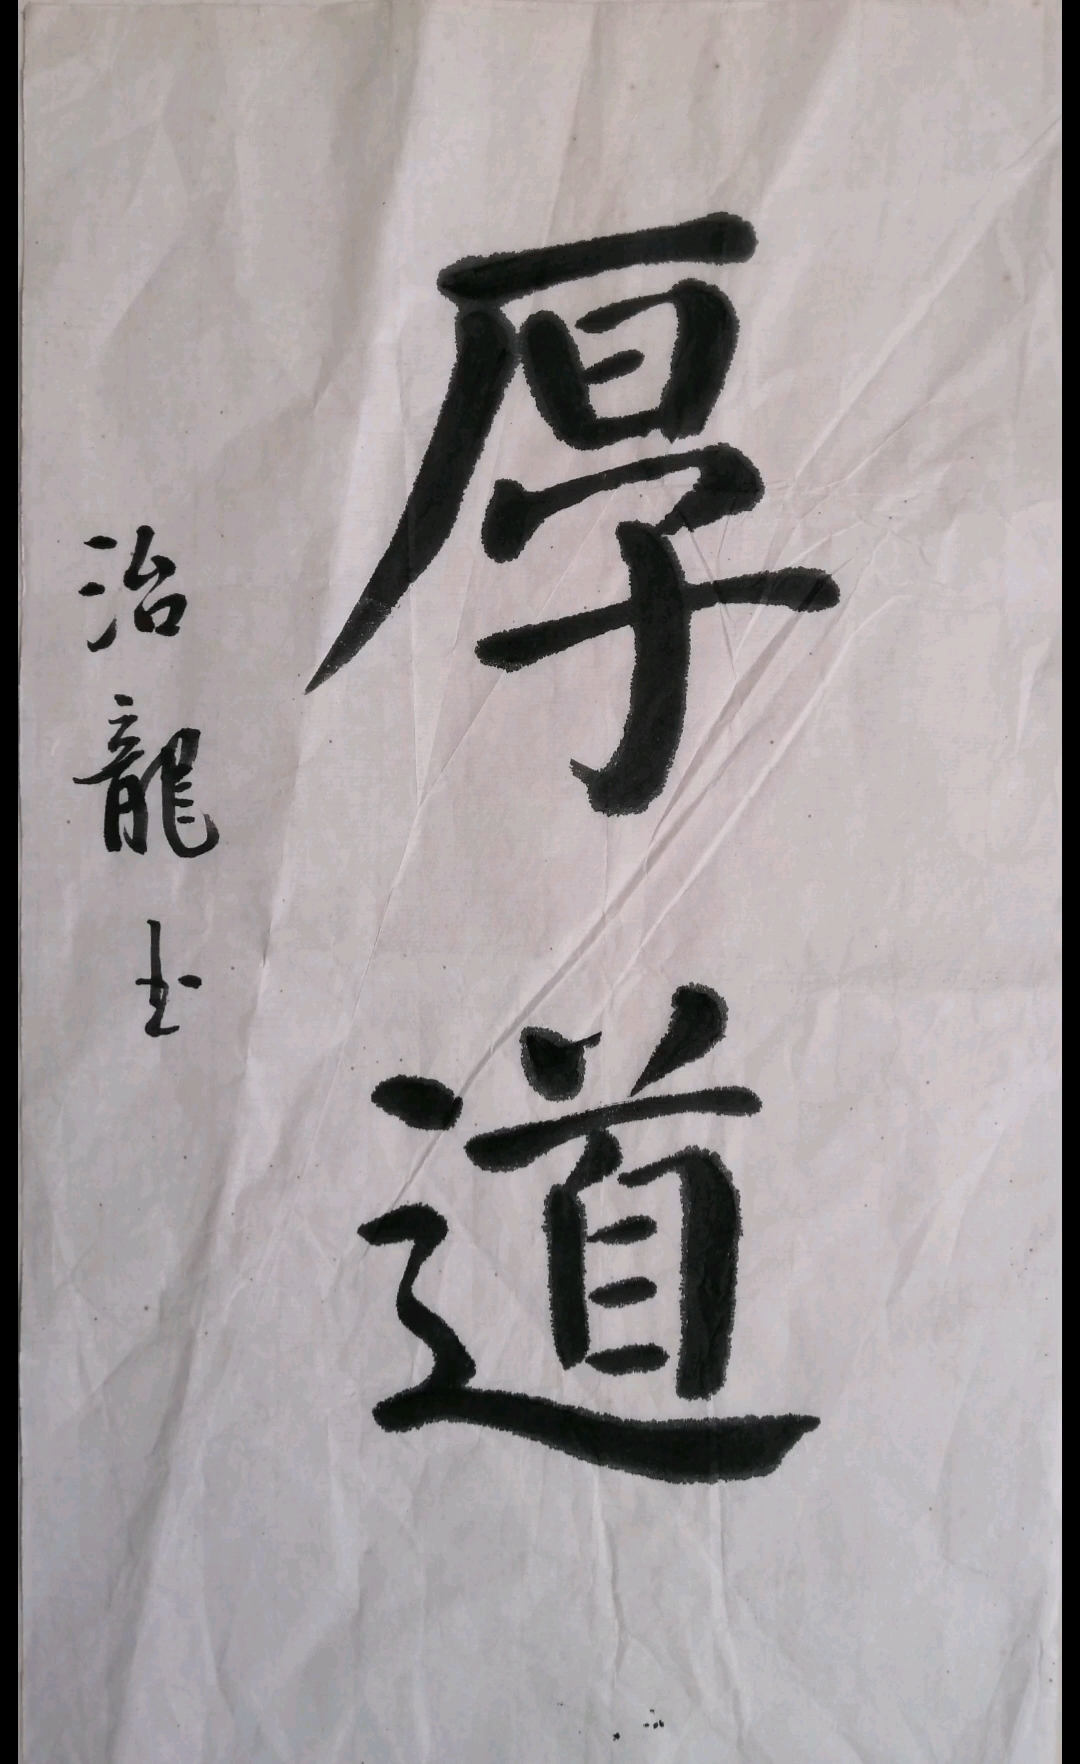 厚道
治龍书